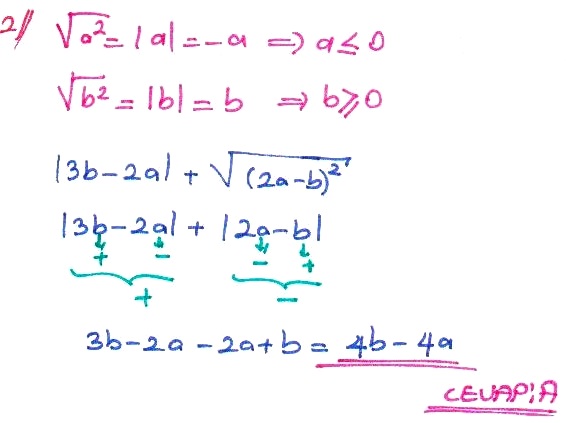 2// √a² = |a| = -a ⇒ a ≤ 0
√b² = |b| = b ⇒ b ≥ 0
|3b-2a| + √(2a-b)²
|3b-2a| + |2a-b|
+ - - +
+ -
3b-2a-2a+b = 4b-4a
CEVAP: A